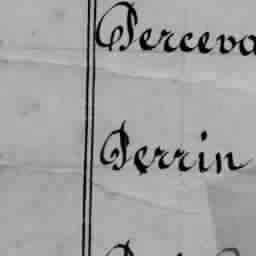 Perceva
Perrin